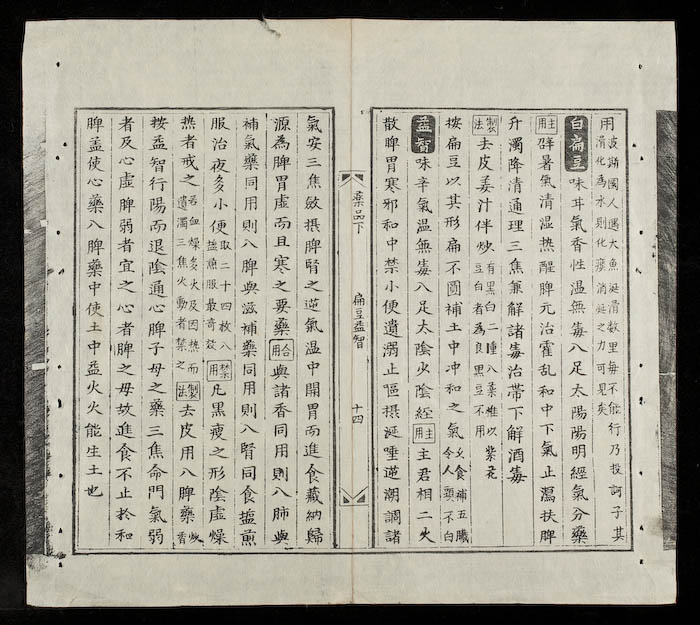 用波斯國人遇大魚涎滑数里每不能行乃投訶子其
滑化為水則化痰消涎之力可見矣
白扁豆味甘氣香性温無毒入足太陽陽明經氣分藥
主用辟暑氣清湿热醒脾元治霍乱和中下氣止瀉扶脾
升濁降清通理三焦兼解諸毒治帶下解酒毒
製法去皮姜汁伴炒有黒白二種入藥惟以紫花
豆白者為良黒豆不用
按扁豆以其形扁不圓補土中冲和之氣久食補五臟
令人頭不白
益智味辛氣温無毒入足太陰少陰經主用主君相二火
散脾胃寒邪和中禁小便遺溺止嘔摂涎唾逆潮調諸
藥品下 扁豆益智 十四
氣安三焦斂摂脾腎之逆氣温中開胃而進食藏納歸
源為脾胃虛而且寒之要藥合用與諸香同用則入肺與
補氣藥同用則入脾與滋補藥同用則入腎同食塩煎
服治夜多小便取二十四枚入塩煎服最奇效禁用凡黒瘦之形陰虛燥
热者戒之若血燥多火及因热而遺濁三焦火動者禁之製法去皮用入脾藥炒香
按益智行陽而退陰通心脾子母之藥三焦命門氣弱
者及心虛脾弱者宜之心者脾之母故進食不止於和
脾盖使心藥入脾藥中使土中益火火能生土也